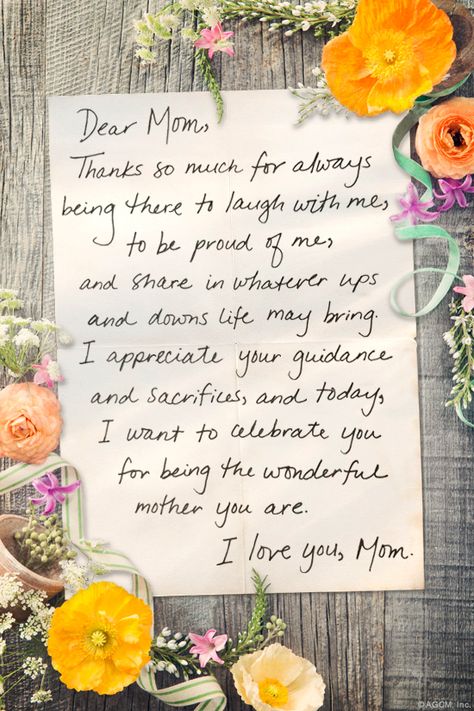 Dear Mom,
Thanks so much for always
being there to laugh with me,
to be proud of me,
and share in whatever ups
and downs life may bring.
I appreciate your guidance
and sacrifices, and today,
I want to celebrate you
for being the wonderful
mother you are.
I love you, Mom.
© AGCM, Inc.